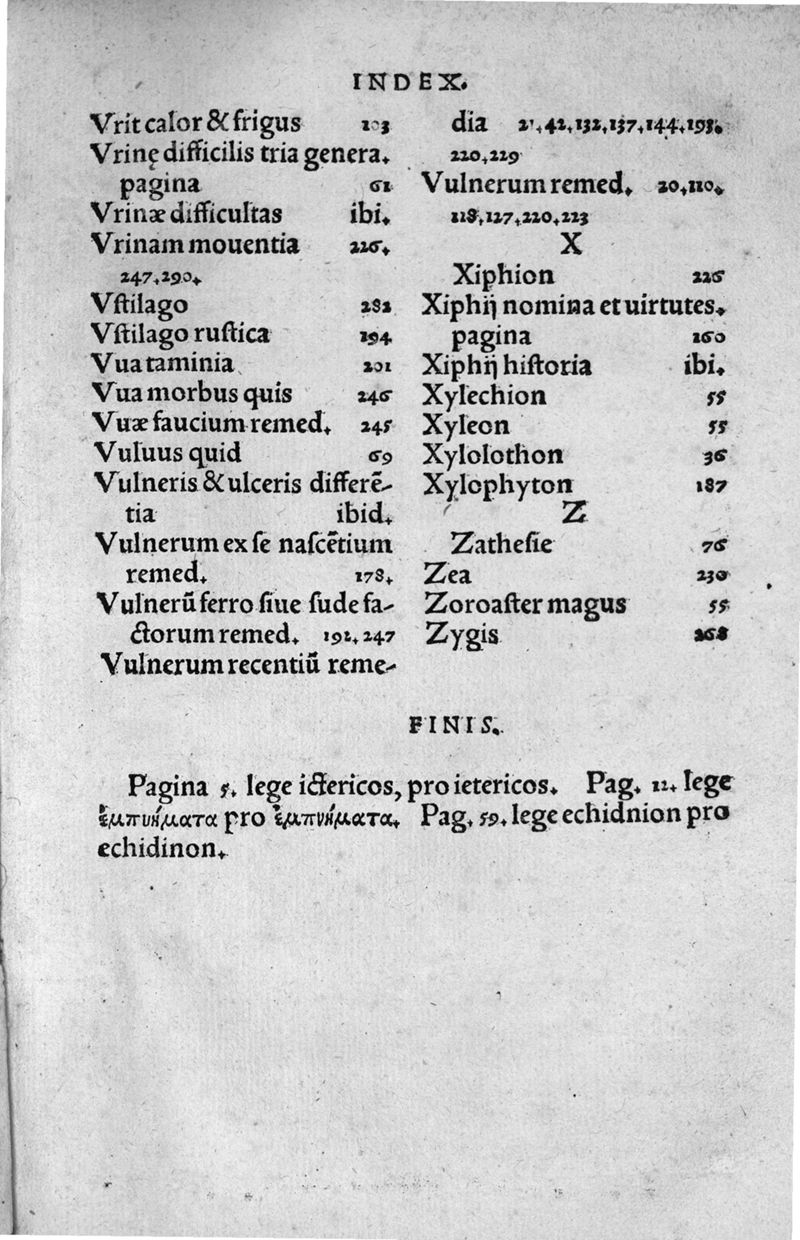 INDEX.
Vrit calor & frigus 103
Vrinę difficilis tria genera.
pagina 61
Vrinæ difficultas ibi.
Vrinam mouentia 226.
247.290.
Vſtilago 282
Vſtilago ruſtica 194
Vua taminia 201
Vua morbus quis 246
Vuæ faucium remed. 245
Vuluus quid 69
Vulneris & ulceris differē-
tia ibid.
Vulnerum ex ſe naſcētium
remed. 178.
Vulnerū ferro ſiue ſude fa-
ctorum remed. 192.247
Vulnerum recentiū reme-
dia 42.132.137.144.198.
220.229
Vulnerum remed. 20.110.
118.127.220.223
X
Xiphion 226
Xiphij nomina et uirtutes.
pagina 160
Xiphij hiſtoria ibi.
Xylechion 55
Xyleon 55
Xylolothon 36
Xylophyton 187
Z
Zatheſie 76
Zea 230
Zoroaſter magus 55
Zygis 268
FINIS.
Pagina 5. lege ictericos, pro ietericos. Pag. 12. lege
ἐμπυήματα pro ἐμπνήματα. Pag. 59. lege echidnion pro
echidinon.